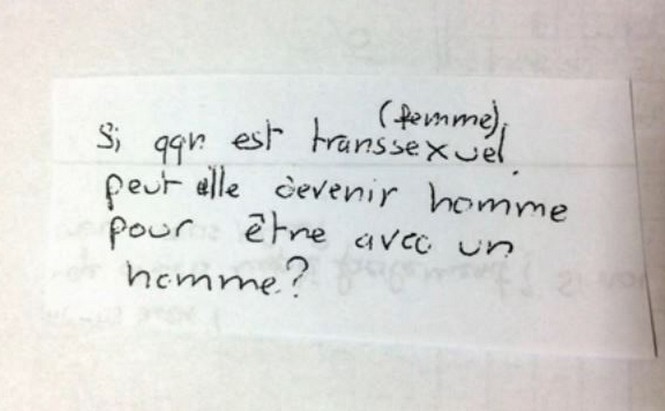 (femme)
Si qqn est transsexuel
peut elle devenir homme
pour être avec un
homme?